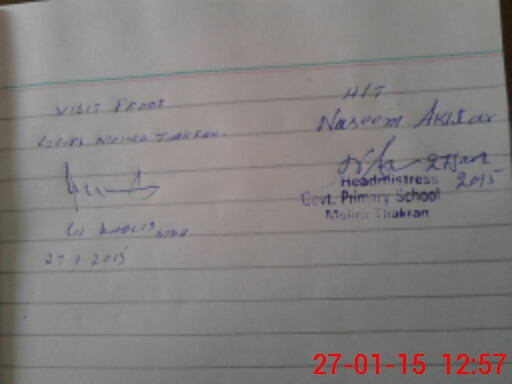 VISIT PROOF
GGPS MOHRA THAKRAN.
27.1.2015
H/T
Naseem Akhtar
27 Jan
2015
Headmistress
Govt. Primary School
Mohra Thakran
27-01-15 12:57